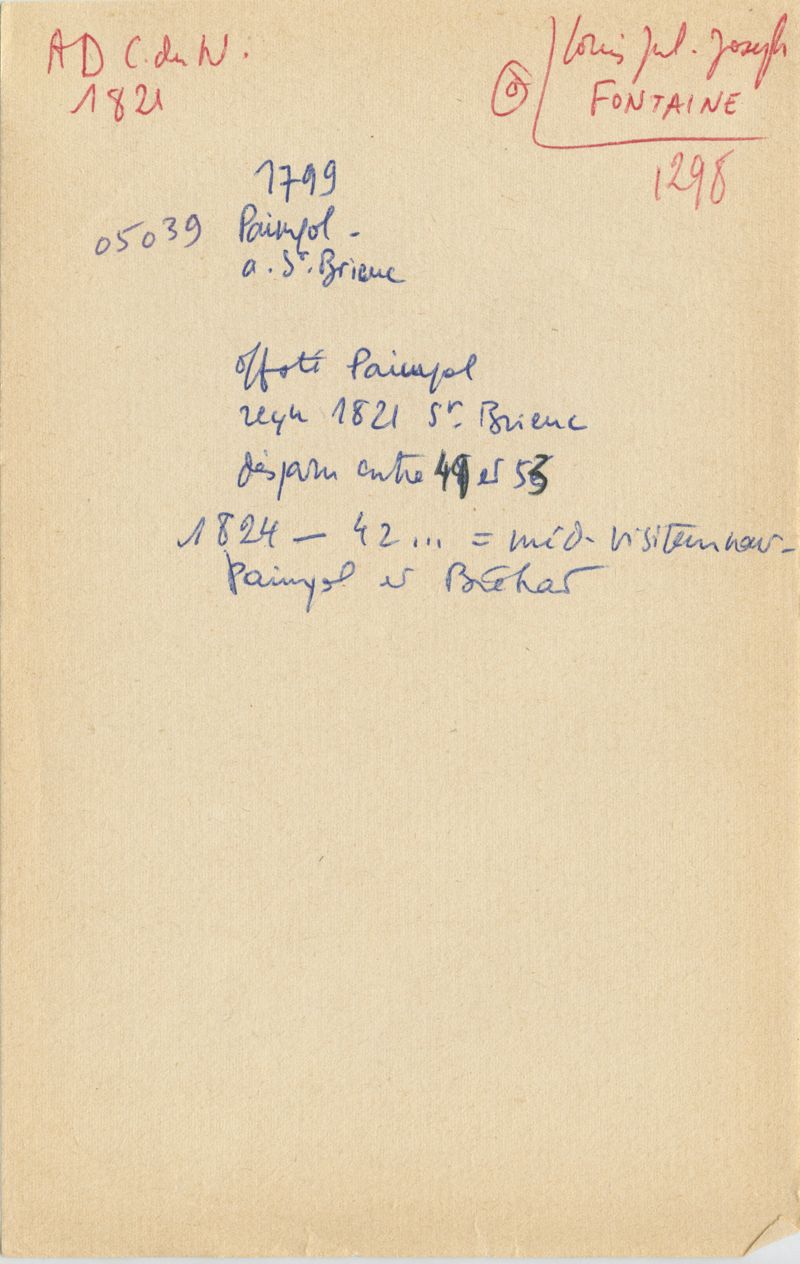 AD C. du N.
1821
Louis Jul. Joseph
FONTAINE
1298
1799
05039 Paimpol -
a. St. Brieuc
offsté Paimpol
reçu 1821 St. Brieuc
disparu entre 49 et 53
1824 — 42 ... = méd. visiteur nav-
Paimpol et Bréhat